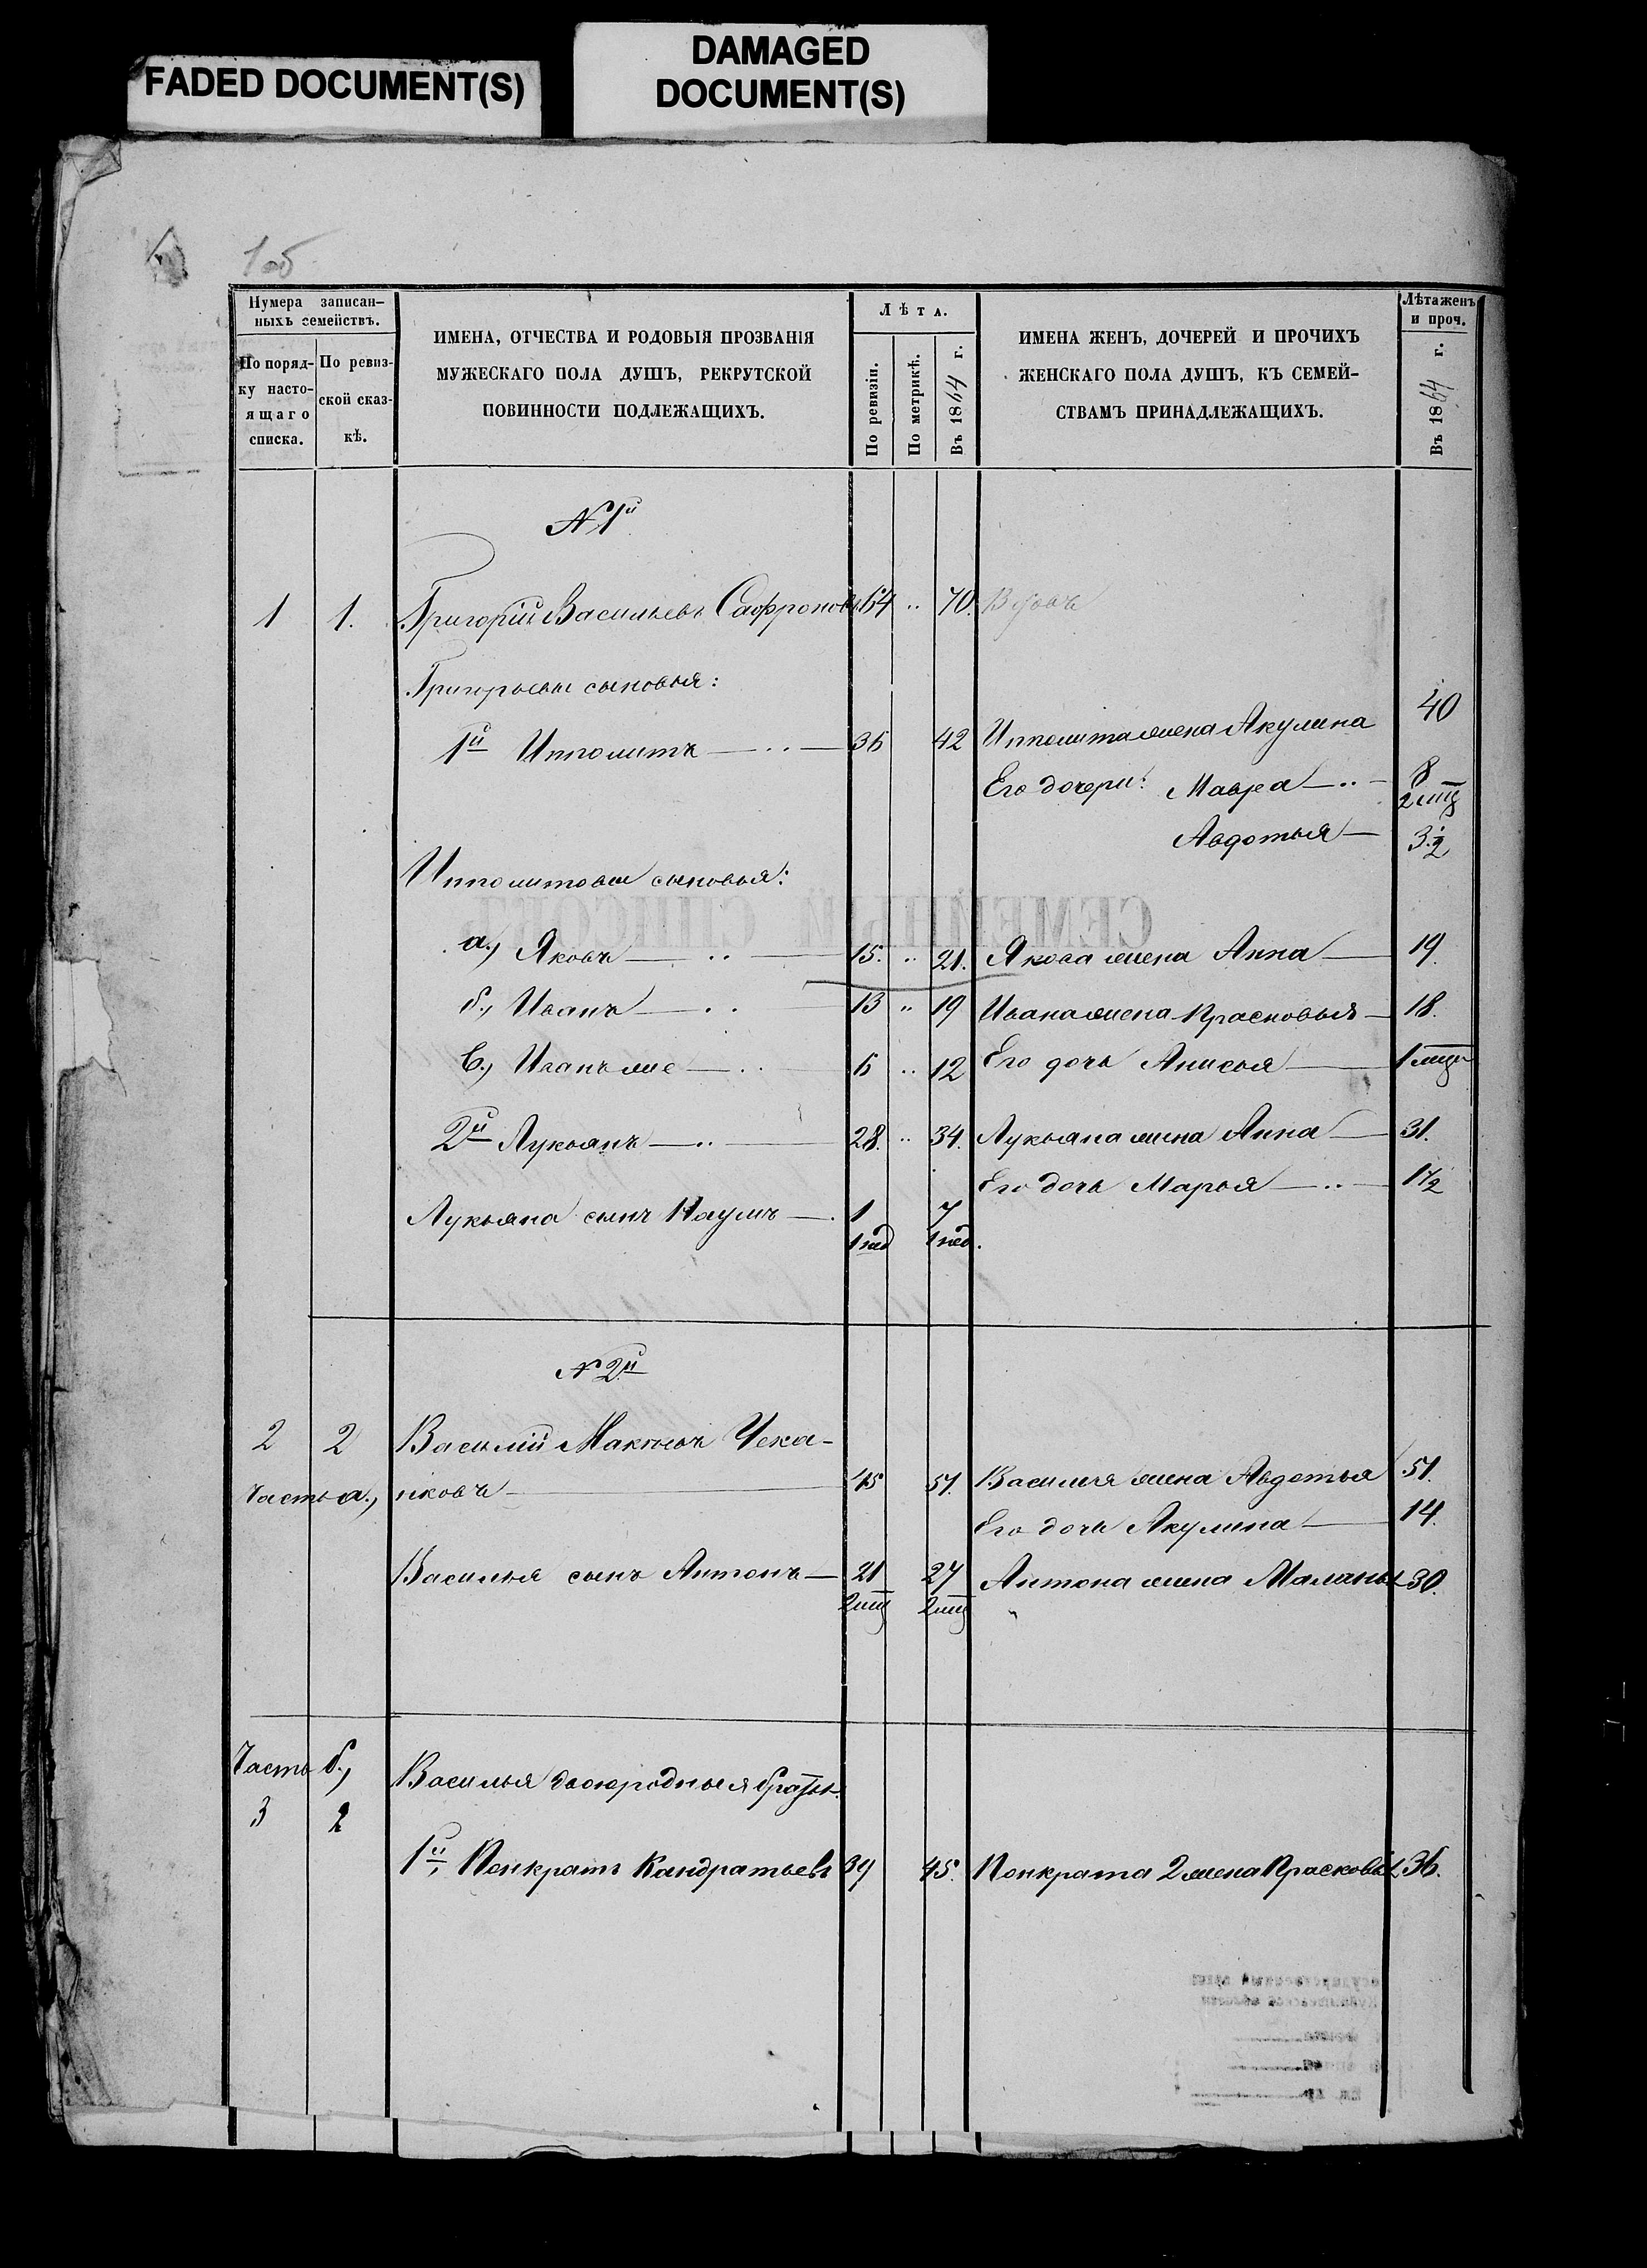 FADED DOCUMENT(S)
DAMAGED
DOCUMENT(S)
1об
Нумера записан-
ныхъ семействъ.
По поряд-
ку насто-
ящаго
списка.
По ревиз-
ской сказ-
кѣ.
ИМЕНА, ОТЧЕСТВА И РОДОВЫЯ ПРОЗВАНІЯ
МУЖЕСКАГО ПОЛА ДУШЪ, РЕКРУТСКОЙ
ПОВИННОСТИ ПОДЛЕЖАЩИХЪ.
Лѣта.
По ревизіи.
По метрикѣ.
Въ 1864 г.
ИМЕНА ЖЕНЪ, ДОЧЕРЕЙ И ПРОЧИХЪ
ЖЕНСКАГО ПОЛА ДУШЪ, КЪ СЕМЕЙ-
СТВАМЪ ПРИНАДЛЕЖАЩИХЪ.
Лѣта женъ
и проч.
Въ 1864 г.
№ 1й
1 1. Григорій Васильевъ Сафроновъ 64 .. 70. Вдовъ
Григорьевы сыновья:
1й Ипполитъ — .. — 36 42 Ипполита жена Акулина 40
Его дочери: Мавра — .. — 8
2 мца
Авдотья — 3 1/2
Ипполитовы сыновья:
а., Яковъ — .. — 15. .. 21. Якова жена Анна — 19.
б., Иванъ — .. 13 .. 19 Ивана жена Прасковья — 18.
в., Иванъ же — .. 6 .. 12 Его дочь Анисья — 1 мца
2й Лукьянъ — .. — 28. .. 34. Лукьяна жена Анна — 31.
Его дочь Марья — .. — 1 1/2
Лукьяна сынъ Наумъ — . 1 7
1 нед 1 нед.
№ 2й
2 2 Василій Чека-
Часть а., нковъ — 45 51. Василья жена Авдотья 51.
Его дочь Акулина — 14.
Василья сынъ Антонъ — 21 27 Антона жена Маланья 30.
2 мца 2 мца
Часть б., Василья двоюродныя братья.
3 2
1й, Понкратъ Кандратьевъ 39 45. Понкрата 2 жена Прасковья 36.